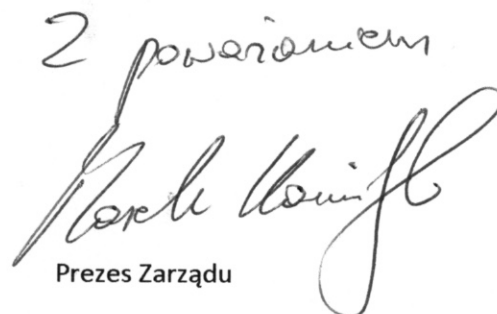 Z poważaniem
Marek
Prezes Zarządu